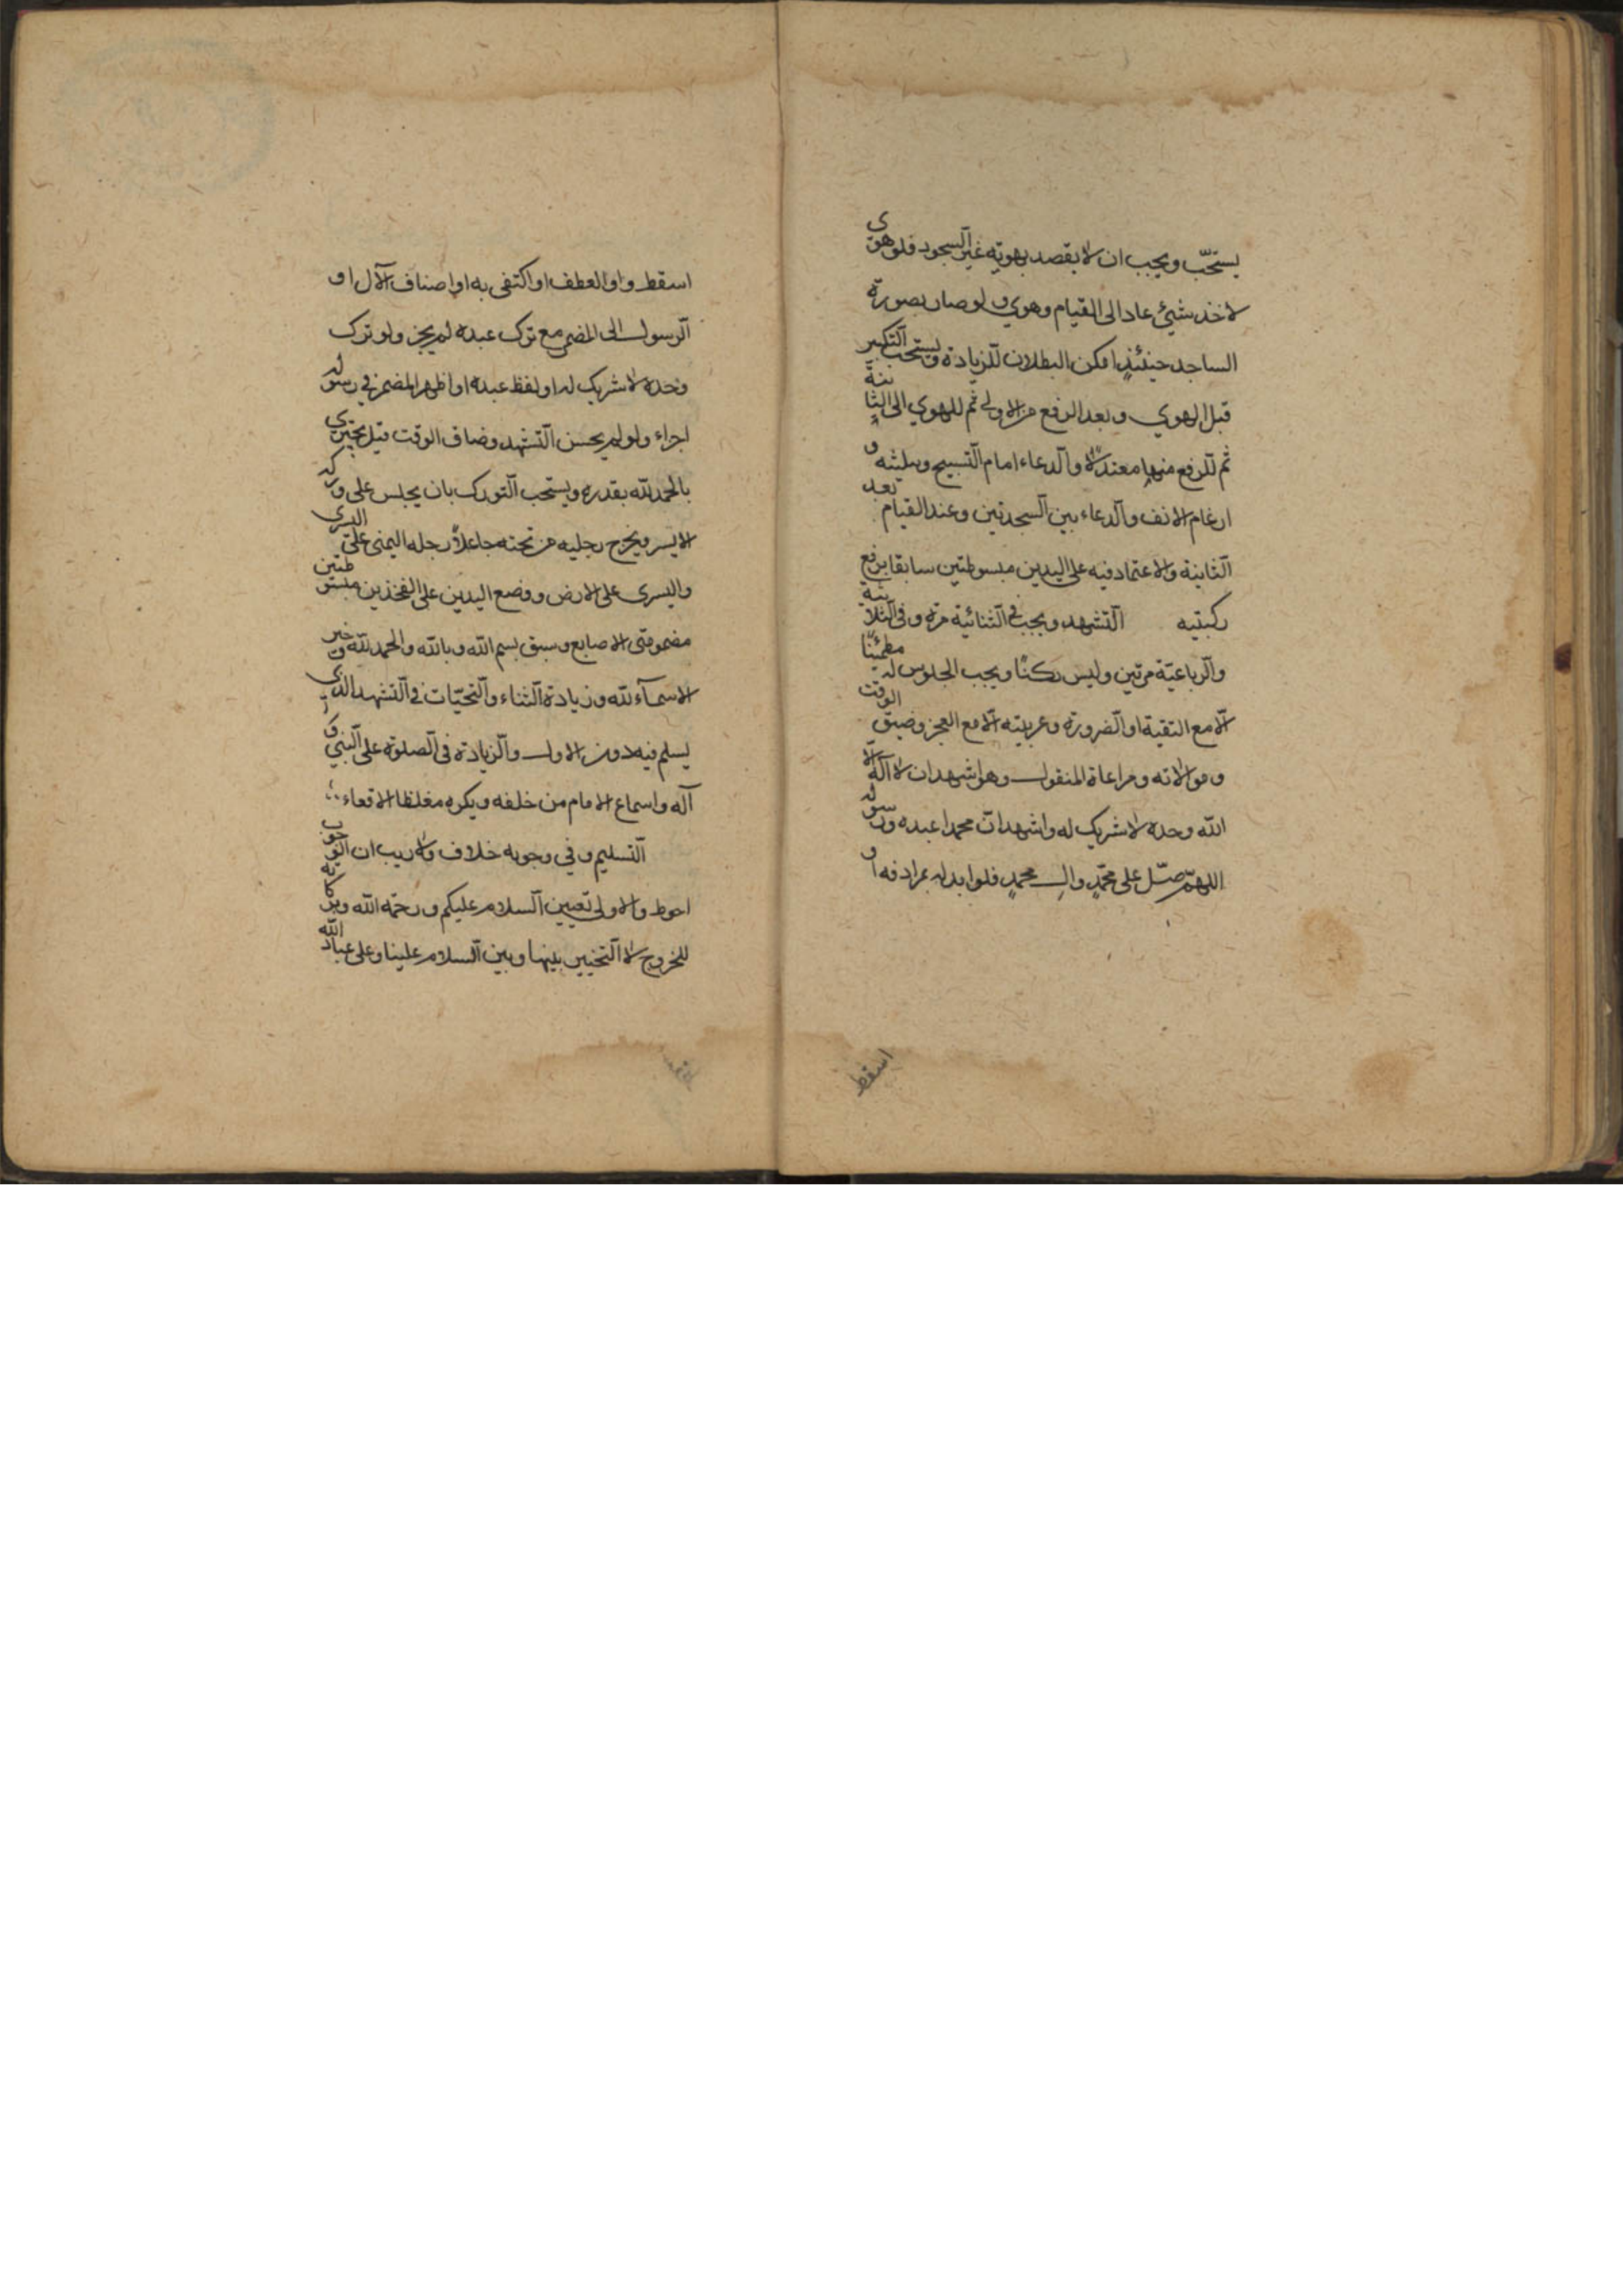 يستحبّ ويجب ان لا يقصد بهويّه غير السجود فلو هوى
لاخذ شيئ عاد الى القيام وهوي ولو صار بصورة
الساجد حينئذٍ امكن البطلان للزيادة ويستحب التكبير
قبل الهوي وبعد الرفع من الاولى ثم للهوي الى الثانية
ثم للرفع منها معتدلا والدعاء امام التسبيح وتثليثه و
ارغام الانف والدعاء بين السجدتين وعند القيام بعد
الثانية والاعتماد فيه على اليدين مبسوطتين سابقا برفع
ركبتيه التشهد ويجب في الثنائية مرة وفى الثلاثية
والرباعيّة مرتين وليس ركنًا ويجب الجلوس له مطمئنّا
الّا مع التقية او الضرورة وعربيته الّا مع العجز وضيق الوقت
وموالاته ومراعاة المنقول وهو اشهد ان لا اله الّا
الله وحده لا شريك له واشهد انّ محمدا عبده ورسوله
اللهمّ صلّ على محمّدٍ وال محمدٍ فلو ابدله بمرادفه او
اسقط
اسقط واو العطف او اكتفى به او اضاف الآل او
الرسول الى المضمر مع ترك عبده لم يجز ولو ترك
وحده لا شريك له او لفظ عبده او اظهر المضمر في رسوله
اجزاء ولو لم يحسن التشهد وضاق الوقت قيل يجتزي
بالحمد لله بقدره ويستحب التورك بان يجلس على وركه
الايسر ويخرج رجليه من تحته جاعلاً رجله اليمنى على اليسرى
واليسرى على الارض ووضع اليدين على الفخذين مبسوطتين
مضمومتى الاصابع وسبق بسم الله وبالله والحمد لله وخير
الاسمآء لله وزيادة الثناء والتحيّات فى التشهد الذي
يسلم فيه دون الاول والزيادة فى الصلوة على النبي و
آله واسماع الامام من خلفه ويكره مغلظا الاقعاء
التسليم وفي وجوبه خلاف ولا ريب ان الوجوب
احوط والاولى تعيين السلام عليكم ورحمة الله وبركاته
للخروج لا التخيير بينها وبين السلام علينا وعلى عباد الله